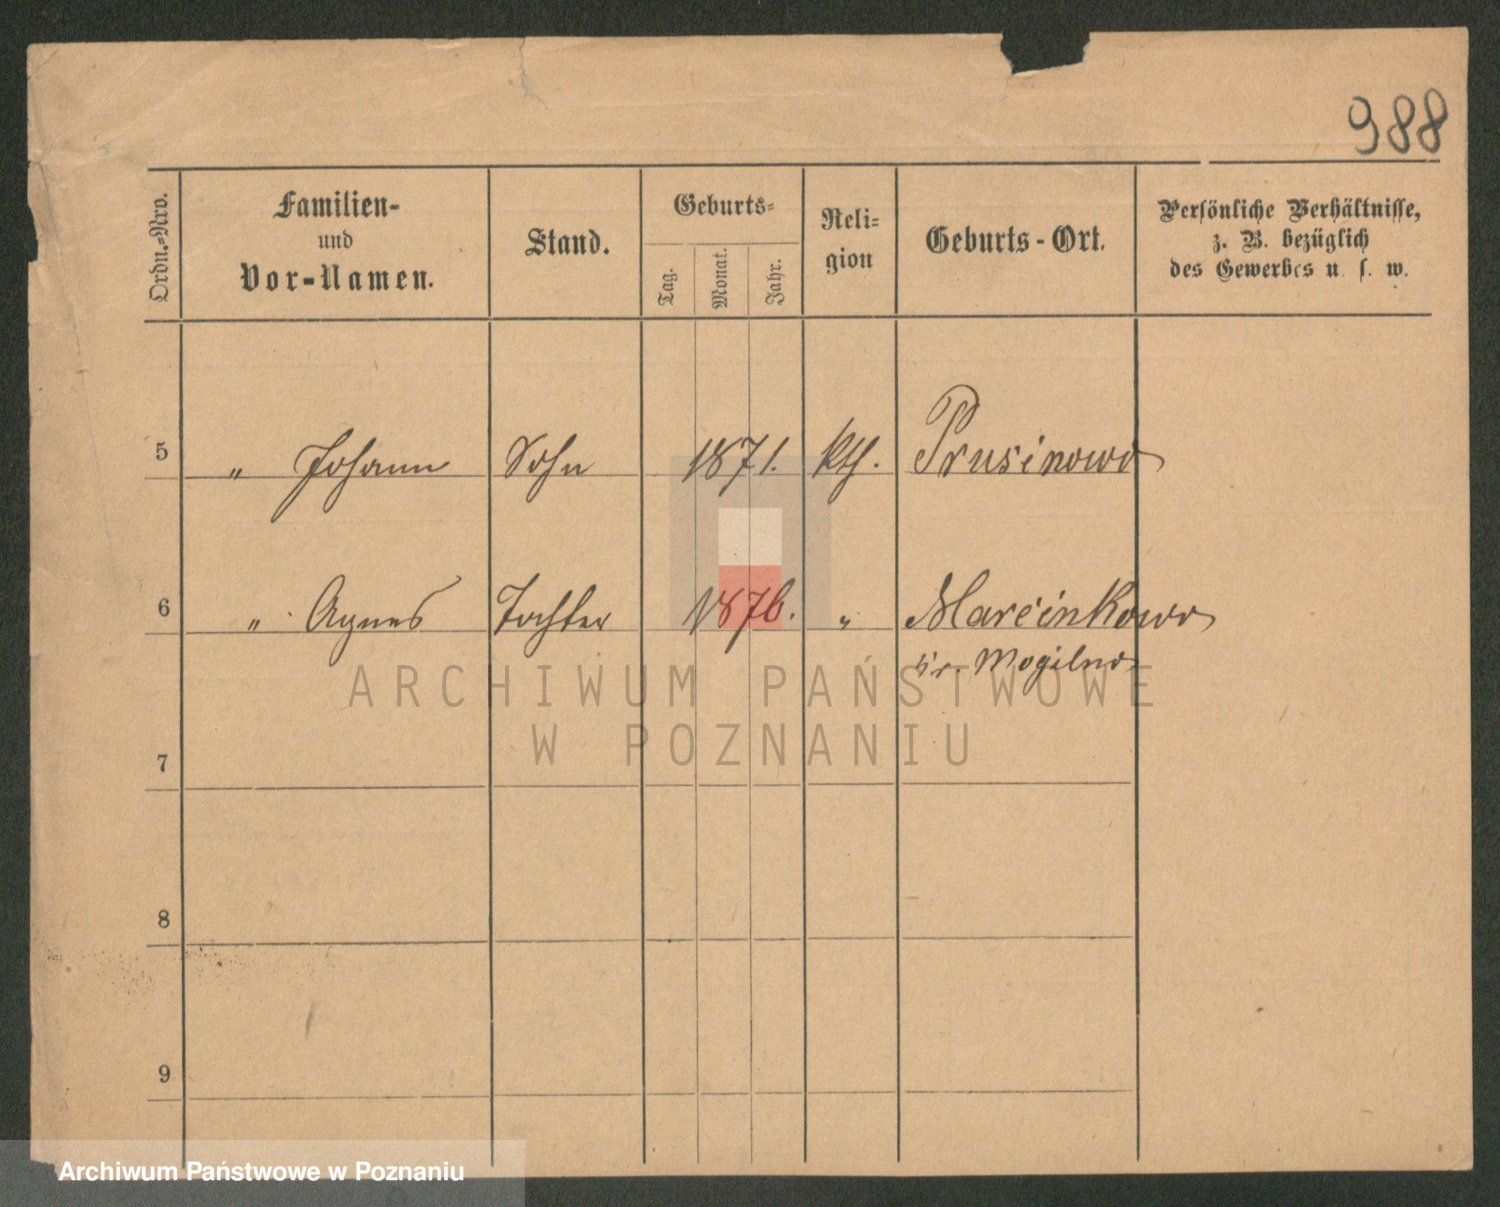 988
Ordn.-Nro.
Familien-
und
Vor-Namen.
Stand.
Geburts-
Tag.
Monat.
Jahr.
Reli-
gion
Geburts-Ort.
Persönliche Verhältnisse,
z. B. bezüglich
des Gewerbes u. s. w.
5 " Johann Sohn 1871. kth. Prusinowo
6 " Agnes Tochter 1876. " Marcinkowo
Kr. Mogilno
7
8
9
ARCHIWUM PAŃSTWOWE
W POZNANIU
Archiwum Państwowe w Poznaniu